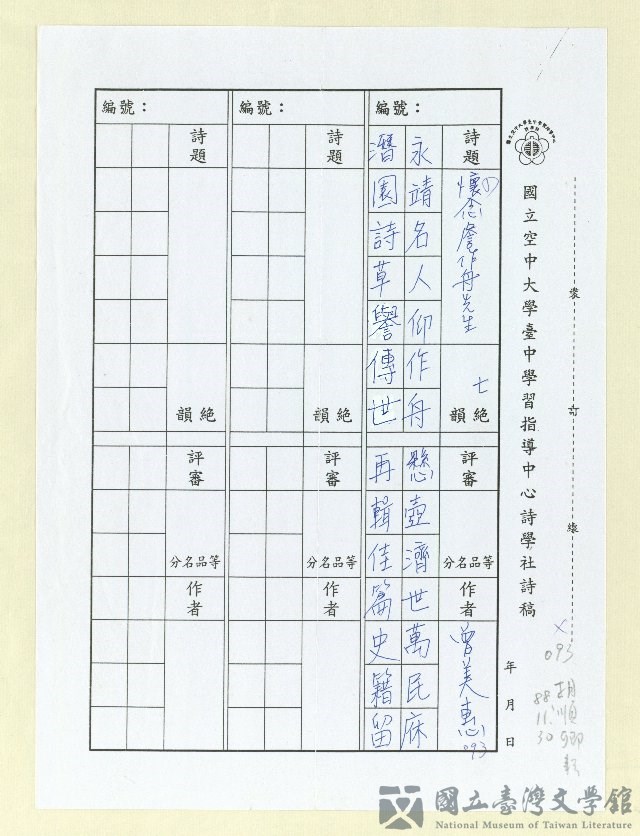 國立空中大學臺中學習指導中心詩學社詩稿
年 月 日
裝訂線
093
胡順卿
88.11.30
編號：
詩題
懷念詹作舟先生
七絕
韻
評審
分名品等
作者
曾美惠 093
永靖名人仰作舟
懸壺濟世萬民庥
潛園詩草譽傳世
再輯佳篇史籍留
編號：
詩題
絕
韻
評審
分名品等
作者
編號：
詩題
絕
韻
評審
分名品等
作者
國立臺灣文學館
National Museum of Taiwan Literature